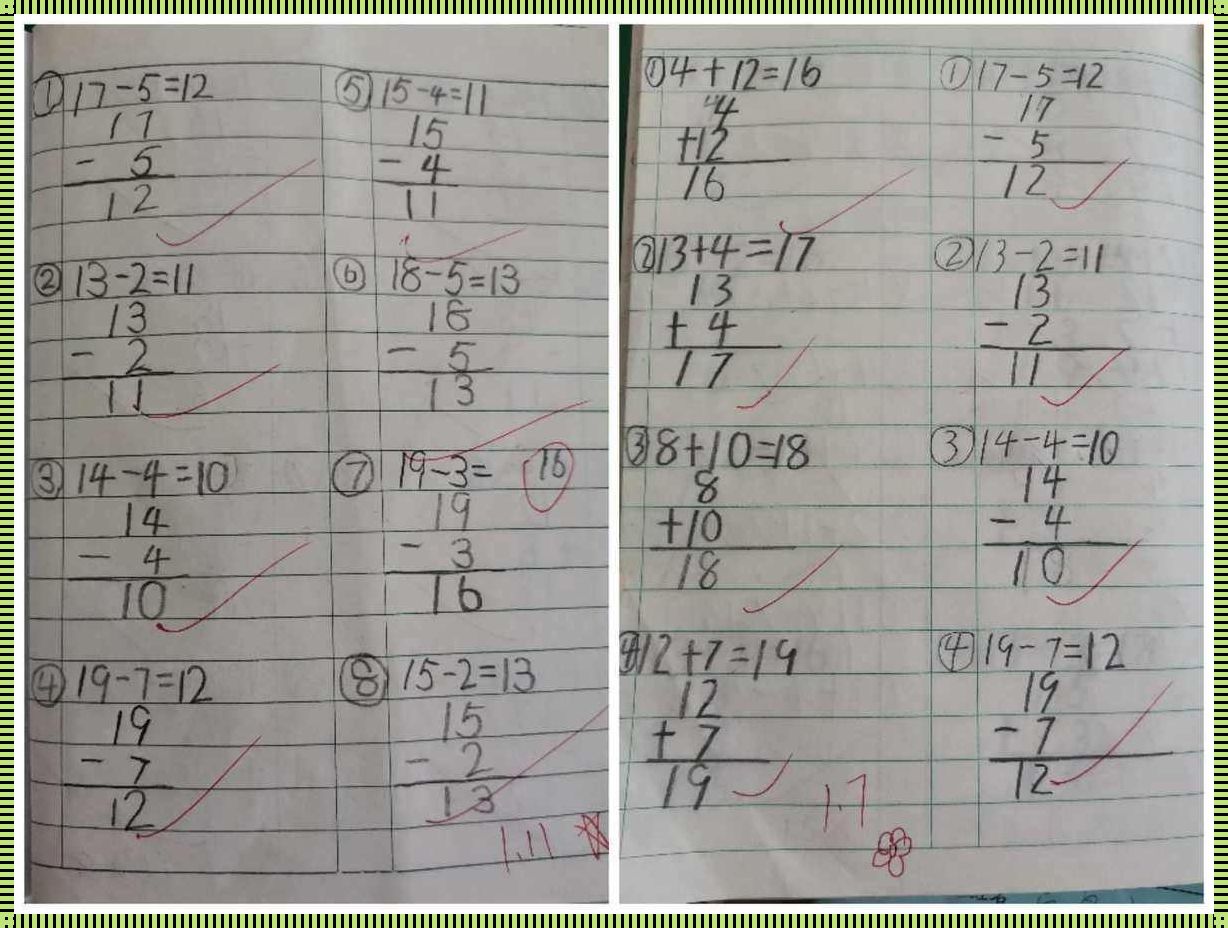 ① 17-5=12
17
- 5
12
② 13-2=11
13
- 2
11
③ 14-4=10
14
- 4
10
④ 19-7=12
19
- 7
12
⑤ 15-4=11
15
- 4
11
⑥ 18-5=13
18
- 5
13
⑦ 19-3= 16
19
- 3
16
⑧ 15-2=13
15
- 2
13
1.11
① 4+12=16
4
+12
16
② 13+4=17
13
+ 4
17
③ 8+10=18
8
+10
18
④ 12+7=19
12
+ 7
19
1.7
① 17-5=12
17
- 5
12
② 13-2=11
13
- 2
11
③ 14-4=10
14
- 4
10
④ 19-7=12
19
- 7
12